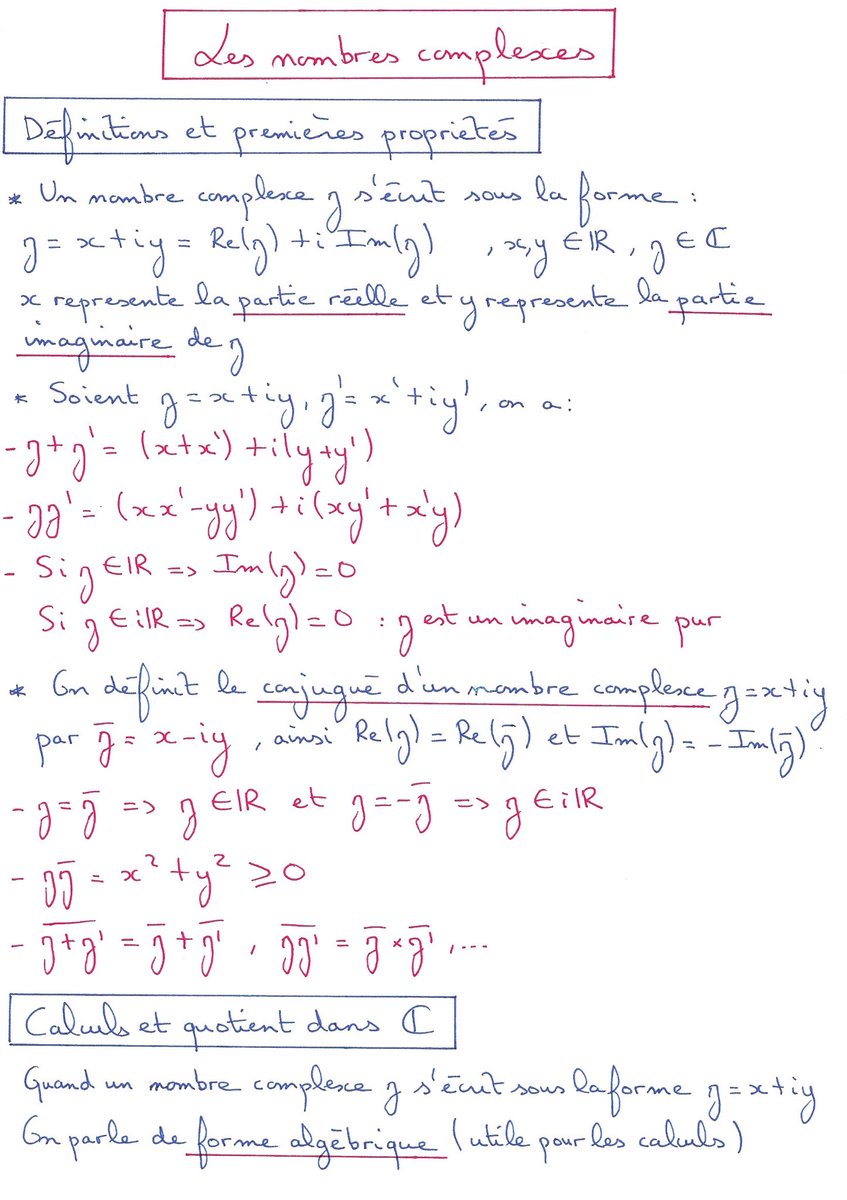 Les nombres complexes
Définitions et premières propriétés
* Un nombre complexe z s'écrit sous la forme :
z = x + iy = Re(z) + i Im(z) , x,y ∈ ℝ , z ∈ ℂ
x represente la partie réelle et y represente la partie
imaginaire de z
* Soient z = x + iy, z' = x' + iy', on a :
- z + z' = (x + x') + i(y + y')
- zz' = (xx' - yy') + i(xy' + x'y)
- Si z ∈ ℝ => Im(z) = 0
Si z ∈ iℝ => Re(z) = 0 : z est un imaginaire pur
* On définit le conjugué d'un nombre complexe z = x + iy
par z̅ = x - iy , ainsi Re(z) = Re(z̅) et Im(z) = - Im(z̅).
- z = z̅ => z ∈ ℝ et z = - z̅ => z ∈ iℝ
- zz̅ = x² + y² ≥ 0
- z̅+̅z̅'̅ = z̅ + z̅'̅ , z̅z̅'̅ = z̅ × z̅'̅ , ...
Calculs et quotient dans ℂ
Quand un nombre complexe z s'écrit sous la forme z = x + iy
On parle de forme algébrique (utile pour les calculs)